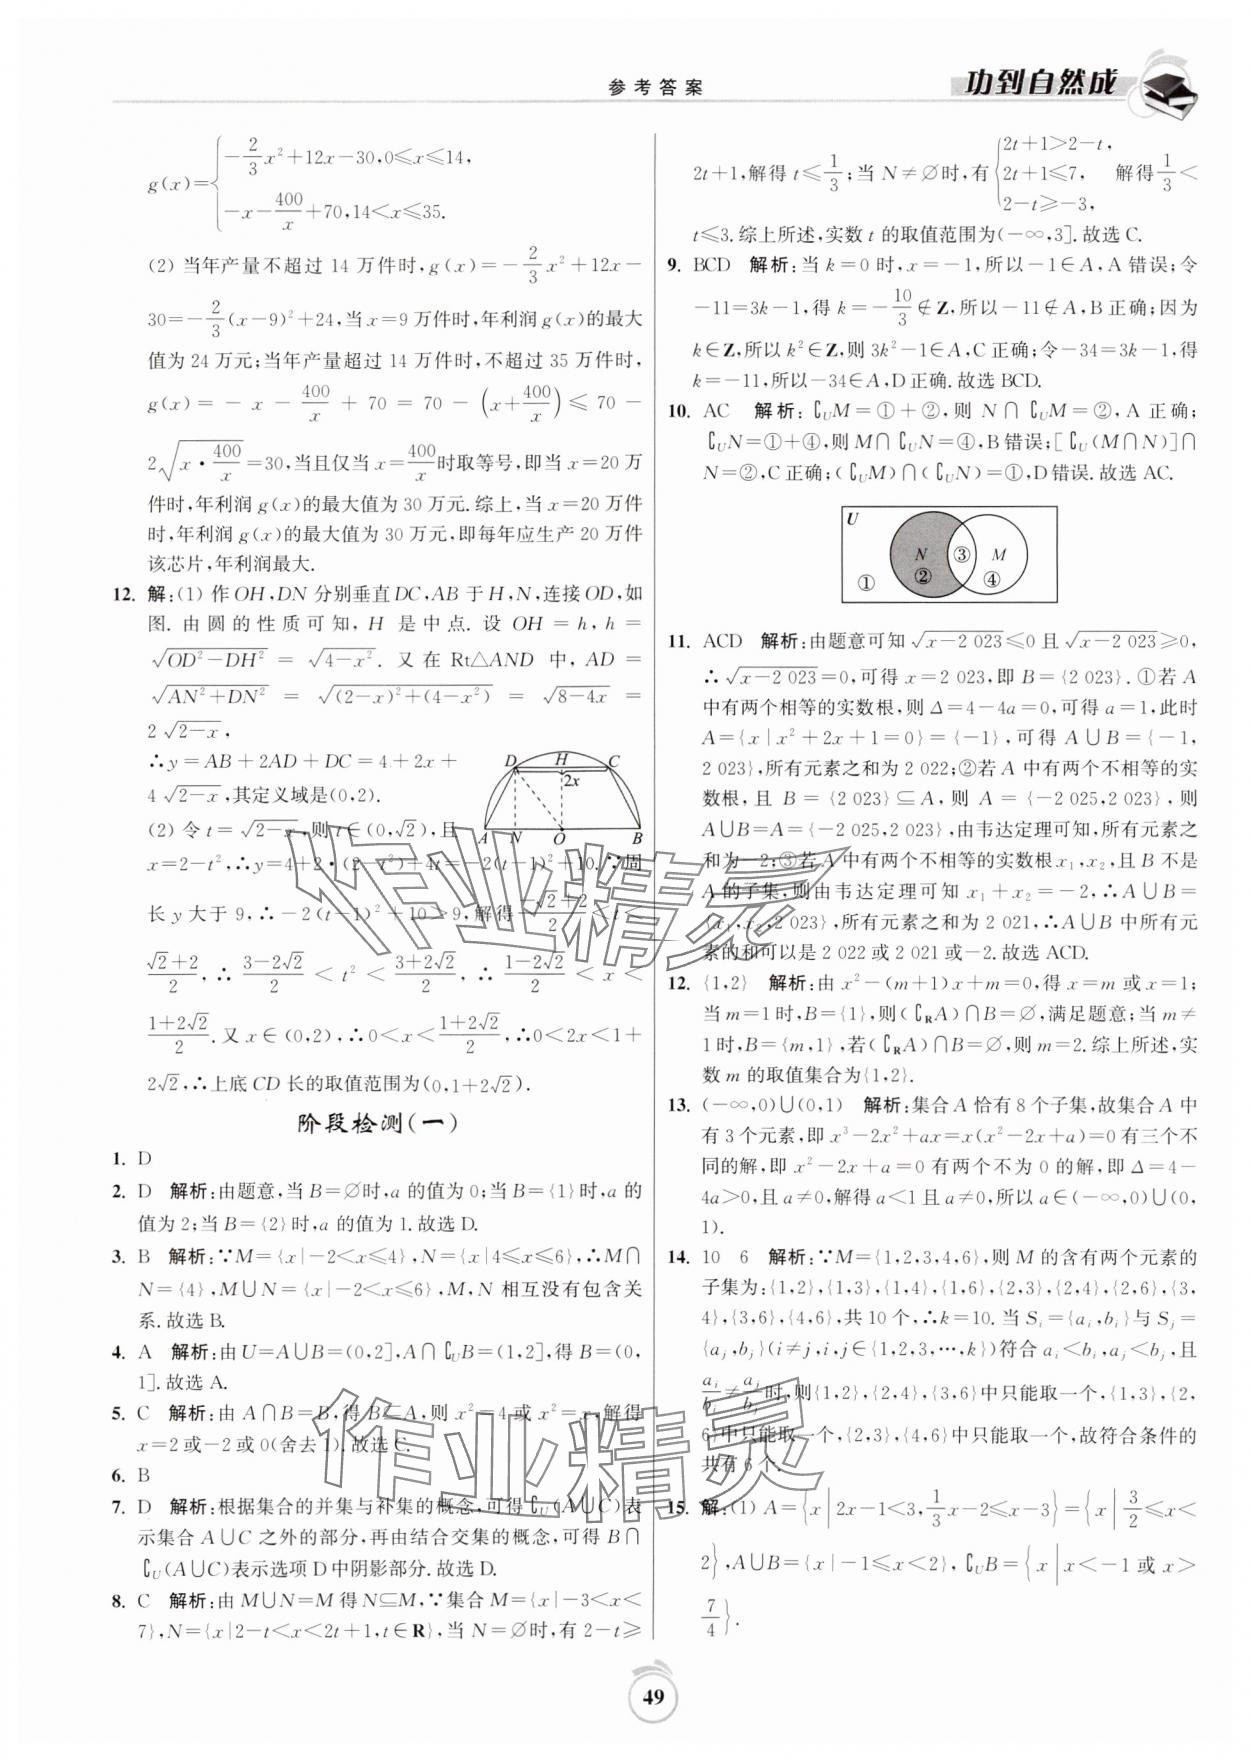 参考答案
功到自然成
g(x)={-2/3x²+12x-30,0≤x≤14,
-x-400/x+70,14<x≤35.
(2) 当年产量不超过 14 万件时,g(x)=-2/3x²+12x-
30=-2/3(x-9)²+24,当 x=9 万件时,年利润 g(x)的最大
值为 24 万元;当年产量超过 14 万件时,不超过 35 万件时,
g(x)=-x-400/x+70=70-(x+400/x)≤70-
2√(x·400/x)=30,当且仅当 x=400/x时取等号,即当 x=20 万
件时,年利润 g(x)的最大值为 30 万元.综上,当 x=20 万件
时,年利润 g(x)的最大值为 30 万元,即每年应生产 20 万件
该芯片,年利润最大.
12. 解:(1) 作 OH,DN 分别垂直 DC,AB 于 H,N,连接 OD,如
图. 由圆的性质可知, H 是中点. 设 OH=h,h=
√(OD²-DH²)=√(4-x²). 又在 Rt△AND 中,AD=
√(AN²+DN²)=√((2-x)²+(4-x²))=√(8-4x)=
2√(2-x),
∴y=AB+2AD+DC=4+2x+
4√(2-x),其定义域是(0,2).
(2) 令 t=√(2-x),则 t∈(0,√2),且
x=2-t²,∴y=4+2·(2-t²)+4t=-2(t-1)²+10.∵周
长 y 大于 9,∴-2(t-1)²+10>9,解得(-√2+2)/2<t<
(√2+2)/2,∴(3-2√2)/2<t²<(3+2√2)/2,∴(1-2√2)/2<x<
(1+2√2)/2.又 x∈(0,2),∴0<x<(1+2√2)/2,∴0<2x<1+
2√2,∴上底 CD 长的取值范围为(0,1+2√2).
D H C
2x
A N O B
阶段检测(一)
1. D
2. D 解析:由题意,当 B=∅时,a 的值为 0;当 B={1}时,a 的
值为 2;当 B={2}时,a 的值为 1.故选 D.
3. B 解析:∵M={x|-2<x≤4},N={x|4≤x≤6},∴M∩
N={4},M∪N={x|-2<x≤6},M,N 相互没有包含关
系.故选 B.
4. A 解析:由 U=A∪B=(0,2],A∩∁UB=(1,2],得 B=(0,
1].故选 A.
5. C 解析:由 A∩B=B,得 B⊆A,则 x²=4 或 x²=x,解得
x=2 或-2 或 0(舍去 1).故选 C.
6. B
7. D 解析:根据集合的并集与补集的概念,可得∁U(A∪C)表
示集合 A∪C 之外的部分,再由结合交集的概念,可得 B∩
∁U(A∪C)表示选项 D 中阴影部分.故选 D.
8. C 解析:由 M∪N=M 得 N⊆M,∵集合 M={x|-3<x<
7},N={x|2-t<x<2t+1,t∈R},当 N=∅时,有 2-t≥
2t+1,解得 t≤1/3;当 N≠∅时,有{2t+1>2-t, 2t+1≤7, 2-t≥-3, 解得1/3<
t≤3.综上所述,实数 t 的取值范围为(-∞,3].故选 C.
9. BCD 解析:当 k=0 时,x=-1,所以-1∈A,A 错误;令
-11=3k-1,得 k=-10/3∉Z,所以-11∉A,B 正确;因为
k∈Z,所以 k²∈Z,则 3k²-1∈A,C 正确;令-34=3k-1,得
k=-11,所以-34∈A,D 正确.故选 BCD.
10. AC 解析:∁UM=①+②,则 N∩∁UM=②,A 正确;
∁UN=①+④,则 M∩∁UN=④,B 错误;[∁U(M∩N)]∩
N=②,C 正确;(∁UM)∩(∁UN)=①,D 错误.故选 AC.
U
N ③ M
① ② ④
11. ACD 解析:由题意可知√(x-2 023)≤0 且√(x-2 023)≥0,
∴√(x-2 023)=0,可得 x=2 023,即 B={2 023}.①若 A
中有两个相等的实数根,则 Δ=4-4a=0,可得 a=1,此时
A={x|x²+2x+1=0}={-1},可得 A∪B={-1,
2 023},所有元素之和为 2 022;②若 A 中有两个不相等的实
数根,且 B={2 023}⊆A,则 A={-2 025,2 023},则
A∪B=A={-2 025,2 023},由韦达定理可知,所有元素之
和为-2;③若 A 中有两个不相等的实数根 x₁,x₂,且 B 不是
A 的子集,则由韦达定理可知 x₁+x₂=-2,∴A∪B=
{x₁,x₂,2 023},所有元素之和为 2 021,∴A∪B 中所有元
素的和可以是 2 022 或 2 021 或-2.故选 ACD.
12. {1,2} 解析:由 x²-(m+1)x+m=0,得 x=m 或 x=1;
当 m=1 时,B={1},则(∁RA)∩B=∅,满足题意;当 m≠
1 时,B={m,1},若(∁RA)∩B=∅,则 m=2.综上所述,实
数 m 的取值集合为{1,2}.
13. (-∞,0)∪(0,1) 解析:集合 A 恰有 8 个子集,故集合 A 中
有 3 个元素,即 x³-2x²+ax=x(x²-2x+a)=0 有三个不
同的解,即 x²-2x+a=0 有两个不为 0 的解,即 Δ=4-
4a>0,且 a≠0,解得 a<1 且 a≠0,所以 a∈(-∞,0)∪(0,
1).
14. 10 6 解析:∵M={1,2,3,4,6},则 M 的含有两个元素的
子集为:{1,2},{1,3},{1,4},{1,6},{2,3},{2,4},{2,6},{3,
4},{3,6},{4,6},共 10 个,∴k=10.当 Sᵢ={aᵢ,bᵢ}与 Sⱼ=
{aⱼ,bⱼ}(i≠j,i,j∈{1,2,3,…,k})符合 aᵢ<bᵢ,aⱼ<bⱼ,且
aᵢ/bᵢ≠aⱼ/bⱼ时,则{1,2},{2,4},{3,6}中只能取一个,{1,3},{2,
6}中只能取一个,{2,3},{4,6}中只能取一个,故符合条件的
共有 6 个.
15. 解:(1) A={x|2x-1<3,1/3x-2≤x-3}={x|3/2≤x<
2},A∪B={x|-1≤x<2},∁UB={x|x<-1 或 x>
7/4}.
49
作业精灵
作业精灵